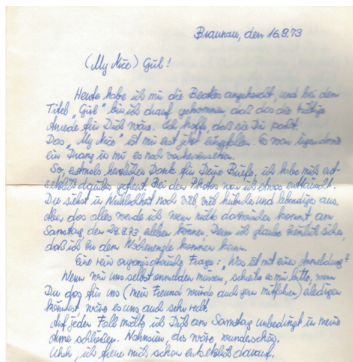 Braunau, den 16.8.73
(My Nice) Girl!
Heute habe ich mir die Beatles angehört, und bei dem
Titel „Girl" bin ich darauf gekommen, daß das die richtige
Anrede für Dich wäre. Ich hoffe, daß sie Dir paßt.
Das „My Nice" ist mir erst jetzt eingefallen. Es war irgendwie
ein Drang in mir es noch
So, erstmals herzlichen Dank für Deine Briefe, ich habe mich
darüber gefreut. Bei den Photos war ich etwas enttäuscht.
Du siehst in Wirklichkeit noch viel, viel hübscher und lebendiger aus.
Aber das alles werde ich, wenn nichts dazwischen kommt am
Samstag den 8.73 erleben können. Denn ich glaube ziemlich sicher,
daß ich zu dem kommen kann.
Eine rein organisatorische Frage: Was ist mit einer Anmeldung?
Wenn wir uns selbst anmelden müssen, schreibe es mir bitte, wenn
Du das für uns (mein Freund würde auch gern mitfahren) erledigen
könntest, wäre es uns auch sehr recht.
Auf jeden Fall möchte ich Dich am Samstag unbedingt in meine
Arme schließen. Wahnsinn, das wäre wunderschön.
ich freue mich schon darauf.